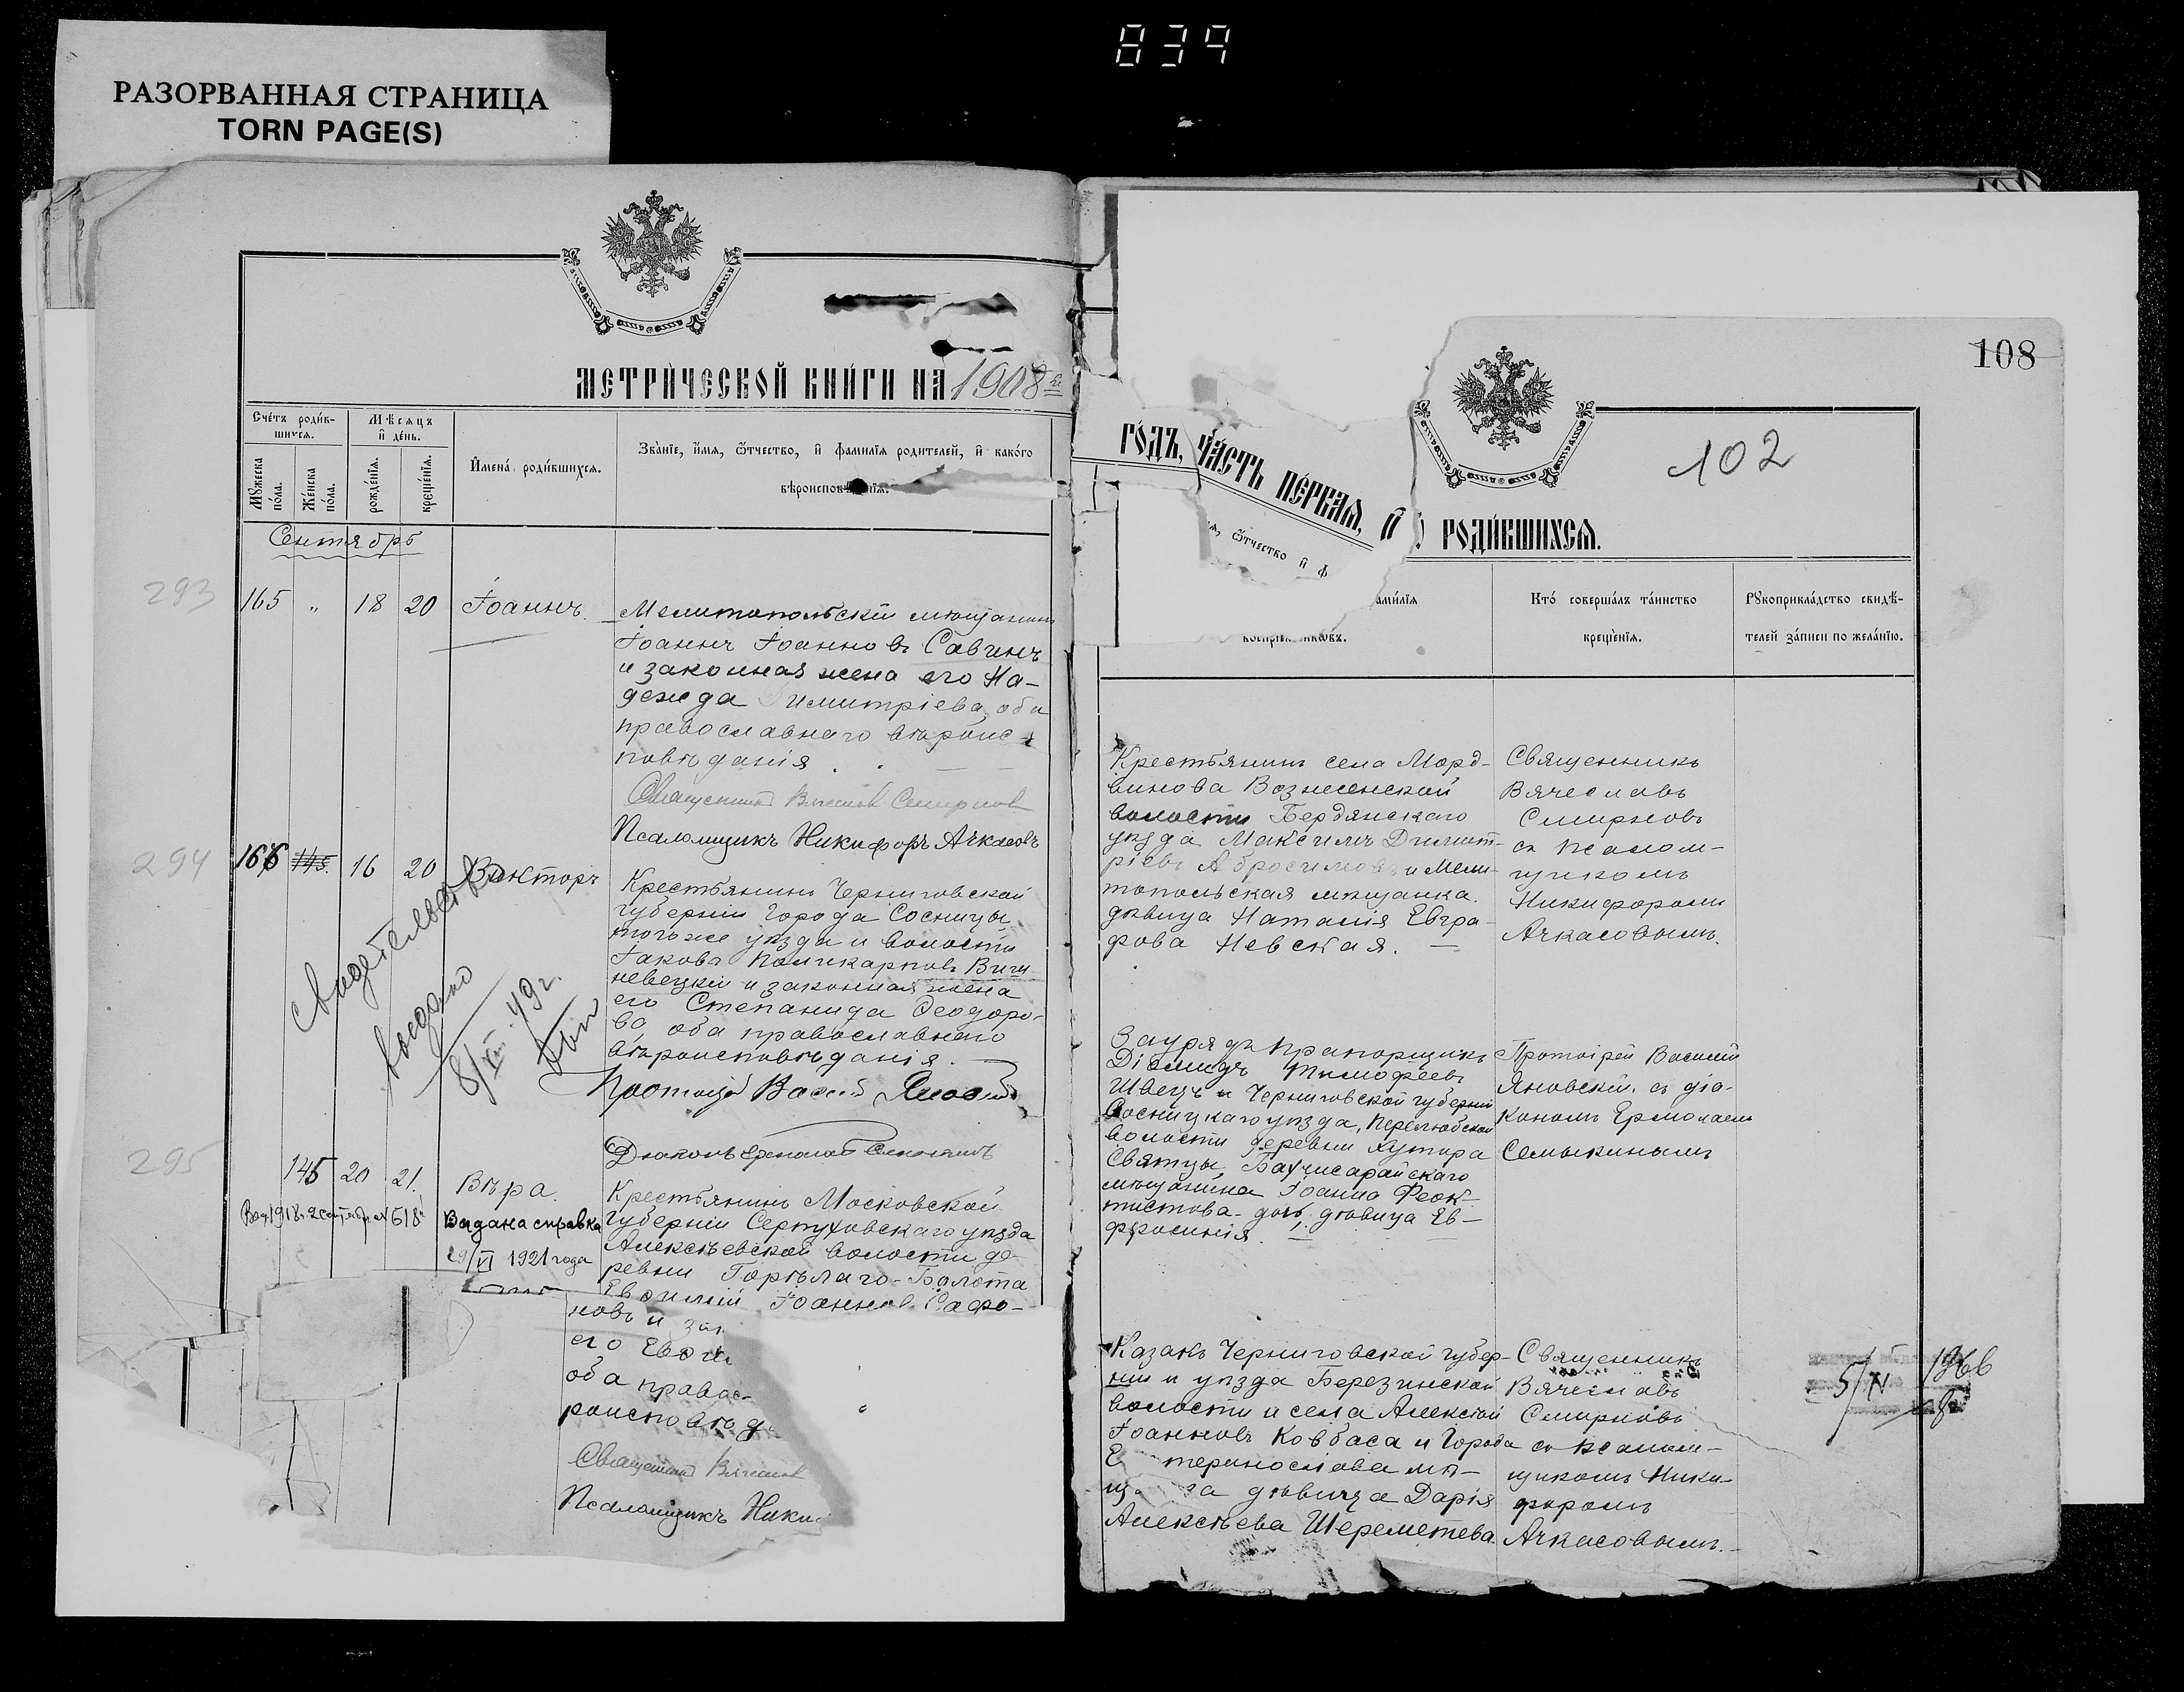 839
РАЗОРВАННАЯ СТРАНИЦА
TORN PAGE(S)
МЕТРИЧЕСКОЙ КНИГИ НА 1908 г.
Счетъ родив-
шихся.
Мѣсяцъ
и день.
Мужеска
пола.
Женска
пола.
рожденія.
крещенія.
Имена родившихся.
Званіе, имя, отчество, и фамилія родителей, и какого
Сентябрь
293
165 " 18 20 Іоаннъ.
Мелитопольскій мѣщанинъ
Іоаннъ Іоанновъ Савинъ
и законная жена его На-
дежда имитріева, оба
православнаго вѣроис-
повѣданія.
Священникъ Вячеслав Смирнов
Псаломщикъ Никифоръ Ачкасовъ
294
166 145. 16 20 Викторъ
Крестьянинъ Черниговской
губерніи города Сосницы
тогоже уѣзда и волости
Іаковъ Поликарповъ Виш-
невецкій и законная жена
его Степанида Ѳеодоро-
ва, оба православнаго
вѣроисповѣданія.
Протоіерей Василій Яновскій
Свидетельство
выдано
8/XII 49 г.
295
145 20 21. Вѣра.
Выдана справка
29/VI 1921 года
Крестьянинъ Московской
губерніи Серпуховскаго уѣзда
Алексѣевской волости де-
ревни Горѣлаго-Болота
Евѳимій Іоанновъ Сафо-
новъ и зак
его Евѳи
оба правос-
роисповѣд
Священникъ Вячеслав
Псаломщикъ Ники
108
102
ГОДЪ, ЧАСТЬ ПЕРВАЯ, О РОДИВШИХСЯ.
отчество и ф
амилія
Кто совершалъ таинство
крещенія.
Рукоприкладство свидѣ-
телей записи по желанію.
Крестьянинъ села Морд-
винова Вознесенской
волости Бердянскаго
уѣзда Максимъ Димит-
ріевъ Абросимовъ и Мели-
топольская мѣщанка
дѣвица Наталія Евгра-
фова Невская.
Священникъ
Вячеславъ
Смирновъ
съ псалом-
щикомъ
Никифоромъ
Ачкасовымъ.
Зауряда Прапорщикъ
Діомидъ Тимофеевъ
Швецъ и Черниговской губерніи
Сосницкаго уѣзда, Перелюбской
волости деревни Хутора
Святцы, Бахчисарайскаго
мѣщанина Іоанна Феок-
тистова дочь дѣвица Ев-
фросинія.
Протоіерей Василій
Яновскій съ діа-
кономъ Ермолаемъ
Семыкинымъ
Казакъ Черниговской губер-
ніи и уѣзда Березинской
волости и села Алексѣй
Іоанновъ Ковбаса и города
Е теринослава мѣ-
щ ка дѣвица Дарія
Алексѣева Шереметева.
Священникъ
Вячеславъ
Смирновъ
съ псалом-
щикомъ Ники-
форомъ
Ачкасовымъ.